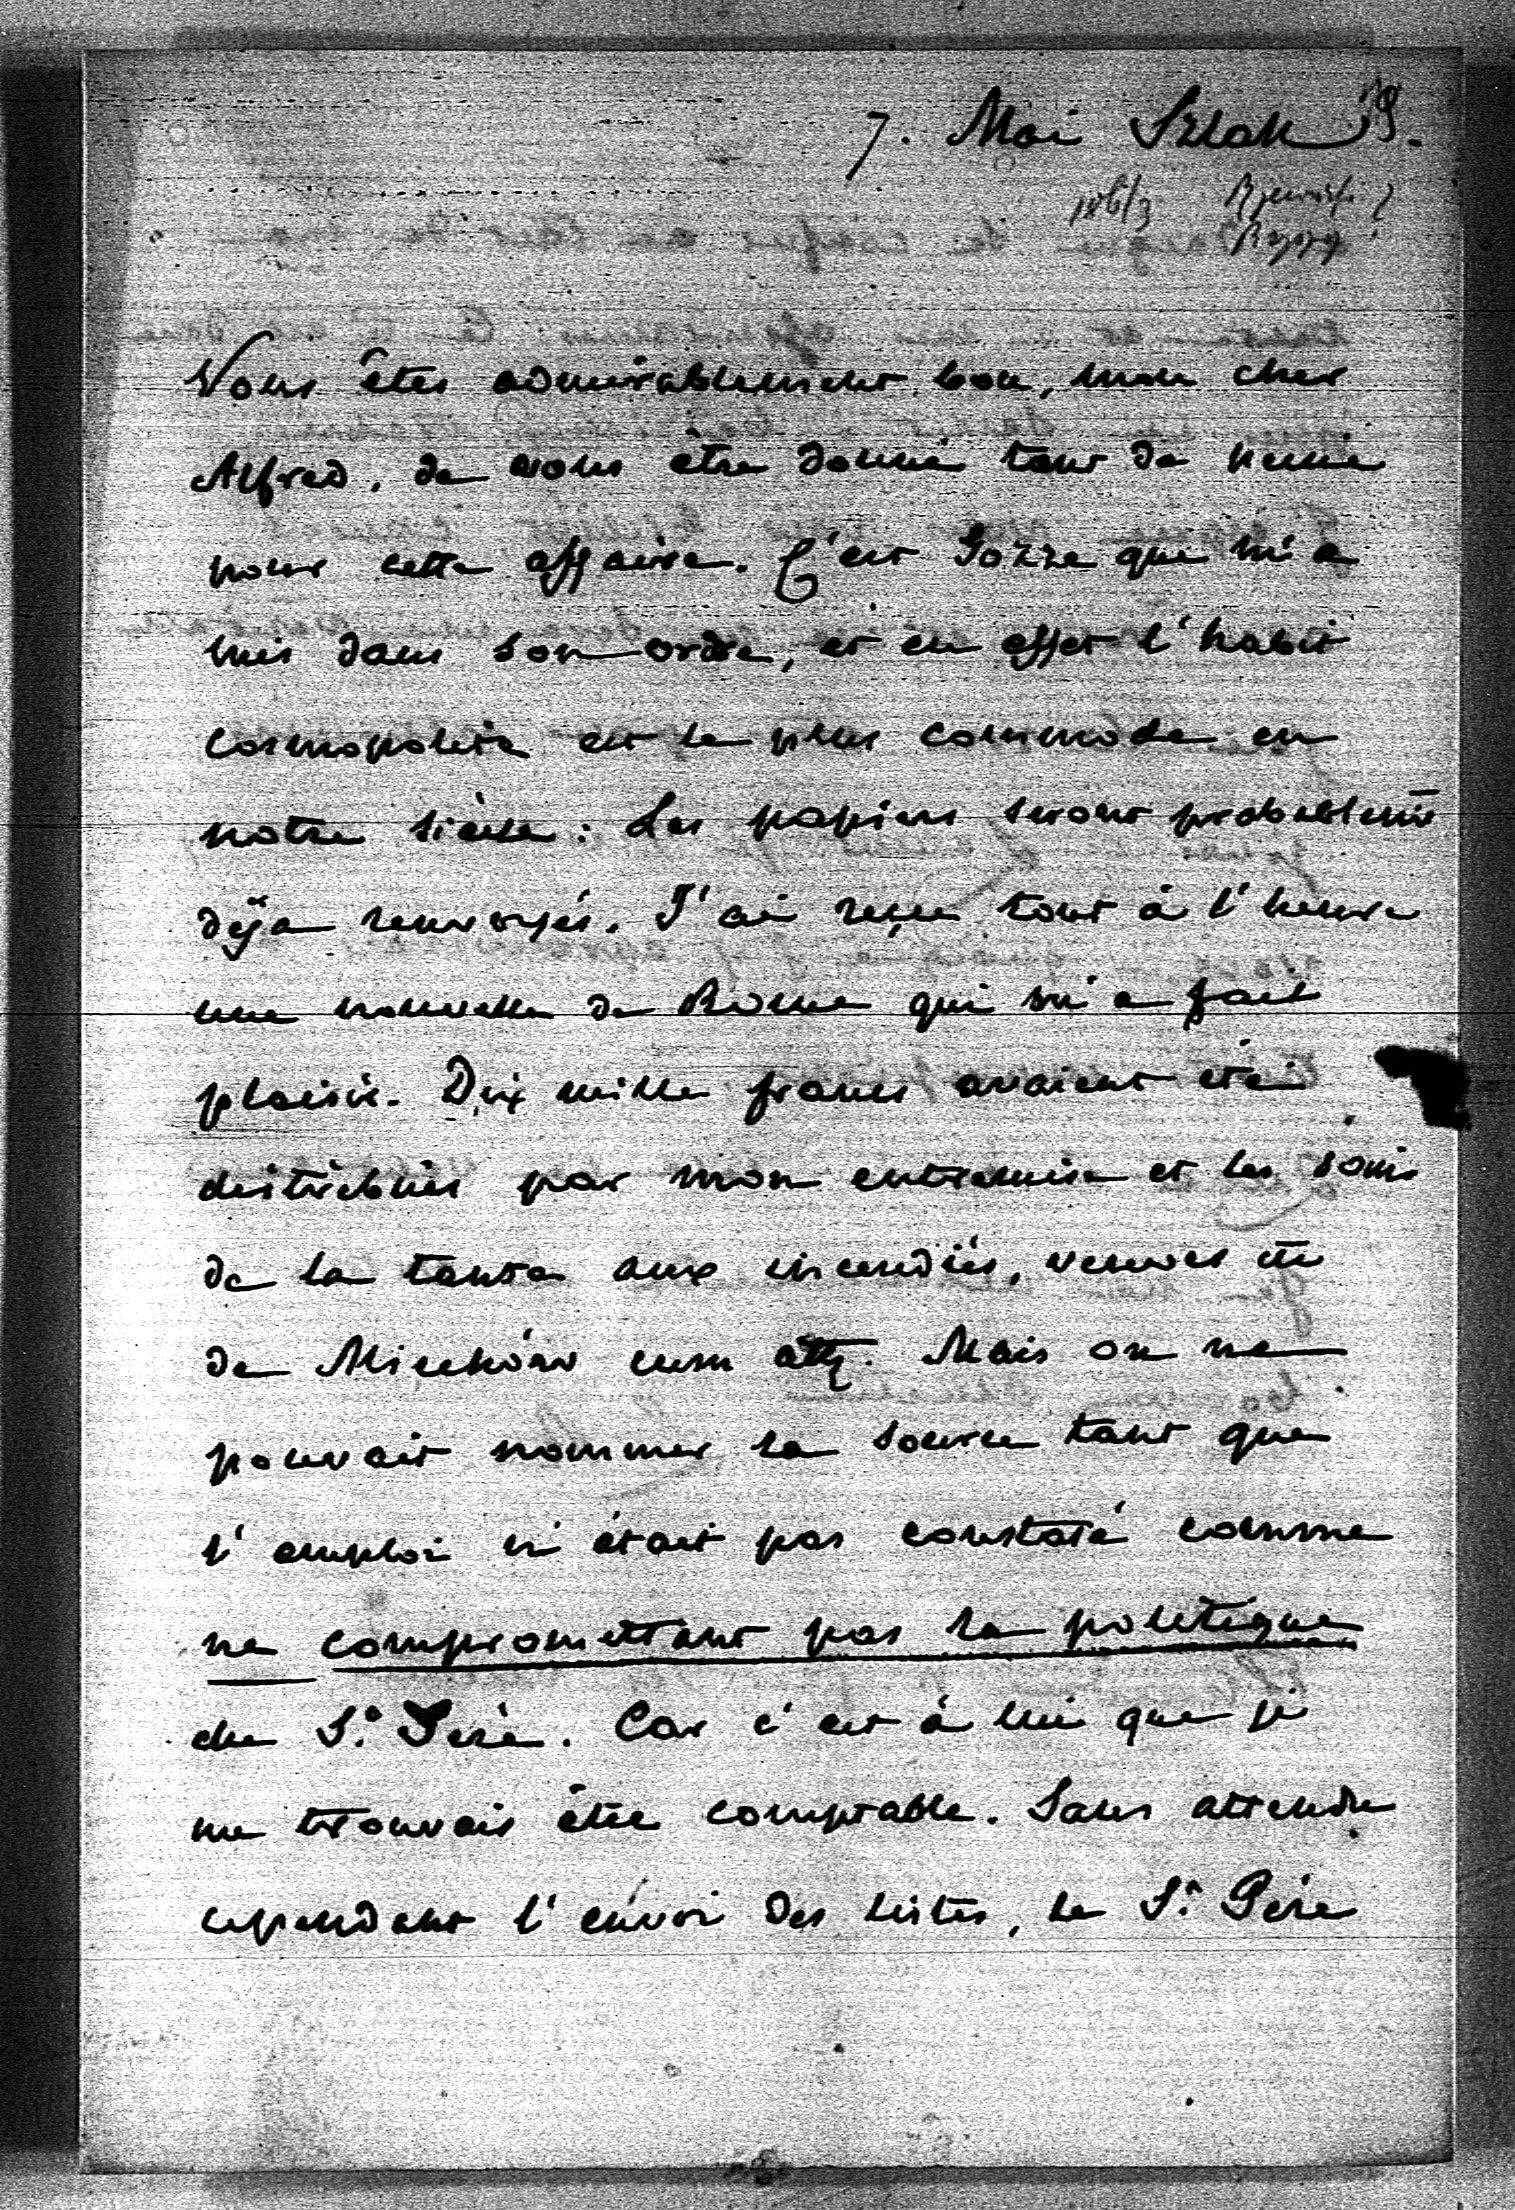 7. Mai Szlak 39.
186/3
Vous êtes admirablement bon, mon cher
Alfred, de vous être donné tant de peine
pour cette affaire. C'est Gozze qui m'a
mis dans son ordre, et en effet l'habit
cosmopolite est le plus commode en
notre siècle: Les papiers seront probablemt
déja renvoyés. J'ai reçu tout à l'heure
une nouvelle de Rome qui m'a fait
plaisir. Dix mille francs avaient été
distribués par mon entremise et les soins
de la tante aux incendiés, veuves etc
de Miechów cum att. Mais on ne
pouvait nommer la source tant que
l'emploi n'était pas constaté comme
ne compromettant pas la politique
du St. Père. Car c'est à lui que je
me trouvais être comptable. Sans attendre
cependant l'envoi des listes, le St. Père